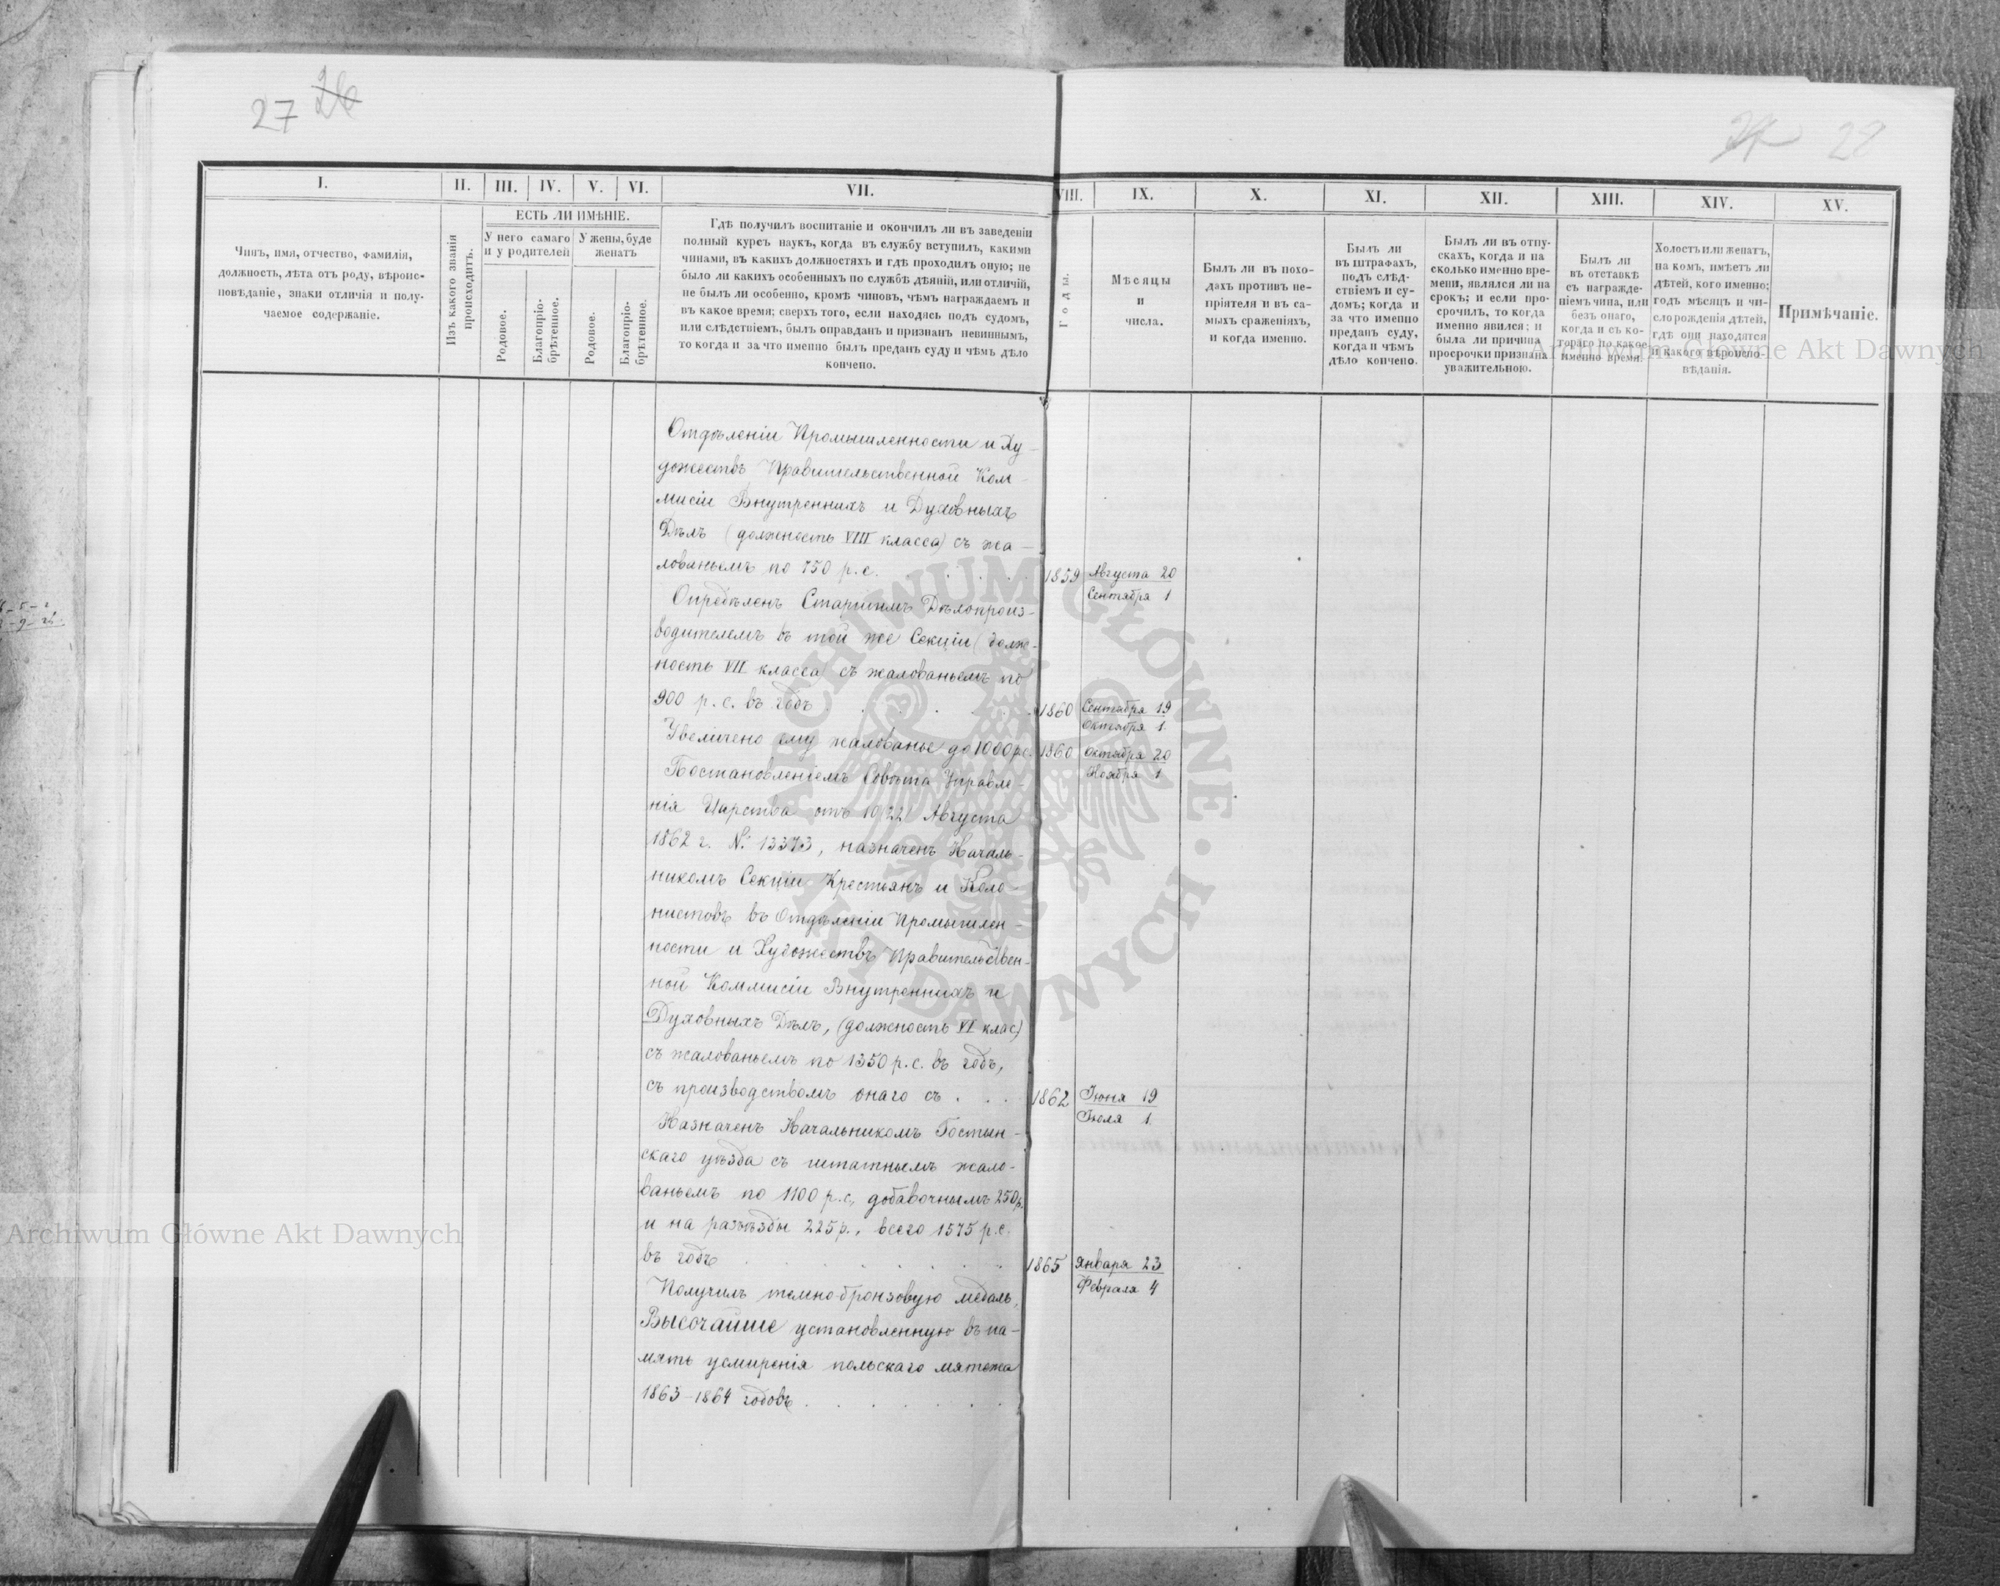 27 26
24 28
I. II. III. IV. V. VI. VII. VIII. IX. X. XI. XII. XIII. XIV. XV.
Чинъ, имя, отчество, фамилія,
должность, лѣта отъ роду, вѣроис-
повѣданіе, знаки отличія и полу-
чаемое содержаніе.
Изъ какого званія
происходитъ.
ЕСТЬ ЛИ ИМѢНІЕ.
У него самаго
и у родителей
У жены, буде
женатъ
Родовое.
Благопріо-
брѣтенное.
Родовое.
Благопріо-
брѣтенное.
Гдѣ получилъ воспитаніе и окончилъ ли въ заведеніи
полный курсъ наукъ, когда въ службу вступилъ, какими
чинами, въ какихъ должностяхъ и гдѣ проходилъ оную; не
было ли какихъ особенныхъ по службѣ дѣяній, или отличій,
не былъ ли особенно, кромѣ чиновъ, чѣмъ награждаемъ и
въ какое время; сверхъ того, если находясь подъ судомъ,
или слѣдствіемъ, былъ оправданъ и признанъ невиннымъ,
то когда и за что именно былъ преданъ суду и чѣмъ дѣло
кончено.
Годы.
Мѣсяцы
и
числа.
Былъ ли въ похо-
дахъ противъ не-
пріятеля и въ са-
мыхъ сраженіяхъ,
и когда именно.
Былъ ли
въ штрафахъ,
подъ слѣд-
ствіемъ и су-
домъ; когда и
за что именно
преданъ суду,
когда и чѣмъ
дѣло кончено.
Былъ ли въ отпу-
скахъ, когда и на
сколько именно вре-
мени, являлся ли на
срокъ; и если про-
срочилъ, то когда
именно явился; и
была ли причина
просрочки признана
уважительною.
Былъ ли
въ отставкѣ
съ награжде-
ніемъ чина, или
безъ онаго,
когда и съ ко-
тораго по какое
именно время.
Холостъ или женатъ,
на комъ, имѣетъ ли
дѣтей, кого именно;
годъ мѣсяцъ и чи-
сло рожденія дѣтей,
гдѣ они находятся
и какого вѣроиспо-
вѣданія.
Примѣчаніе.
Отдѣленіи Промышленности и Ху-
дожествъ Правительственной Ком-
мисіи Внутреннихъ и Духовныхъ
Дѣлъ (должность VIII класса) съ жа-
лованьемъ по 750 р. с. . . . . 1859 Августа 20
Сентября 1
Опредѣленъ Старшимъ Дѣлопроиз-
водителемъ въ той же Секціи (долж-
ность VII класса) съ жалованьемъ по
900 р. с. въ годъ . . . . 1860 Сентября 19
Октября 1
Увеличено ему жалованье до 1000 р.с. 1860 Октября 20
Ноября 1
Постановленіемъ Совѣта Управле-
нія Царства отъ 10/22 Августа
1862 г. № 13373, назначенъ Началь-
никомъ Секціи Крестьянъ и Коло-
нистовъ въ Отдѣленіи Промышлен-
ности и Художествъ Правительствен-
ной Коммисіи Внутреннихъ и
Духовныхъ Дѣлъ, (должность VI клас)
съ жалованьемъ по 1350 р. с. въ годъ,
съ производствомъ онаго съ . . . 1862 Іюня 19
Іюля 1
Назначенъ Начальникомъ Гостын-
скаго уѣзда съ штатнымъ жало-
ваньемъ по 1100 р. с., добавочнымъ 250 р.
и на разъѣзды 225 р., всего 1575 р. с.
въ годъ . . . . . . . 1865 Января 23
Февраля 4
Получилъ темно-бронзовую медаль,
Высочайше установленную въ па-
мять усмиренія польскаго мятежа
1863-1864 годовъ . . . . . .
Archiwum Główne Akt Dawnych
Archiwum Główne Akt Dawnych
ARCHIWUM GŁÓWNE · AKT DAWNYCH ·